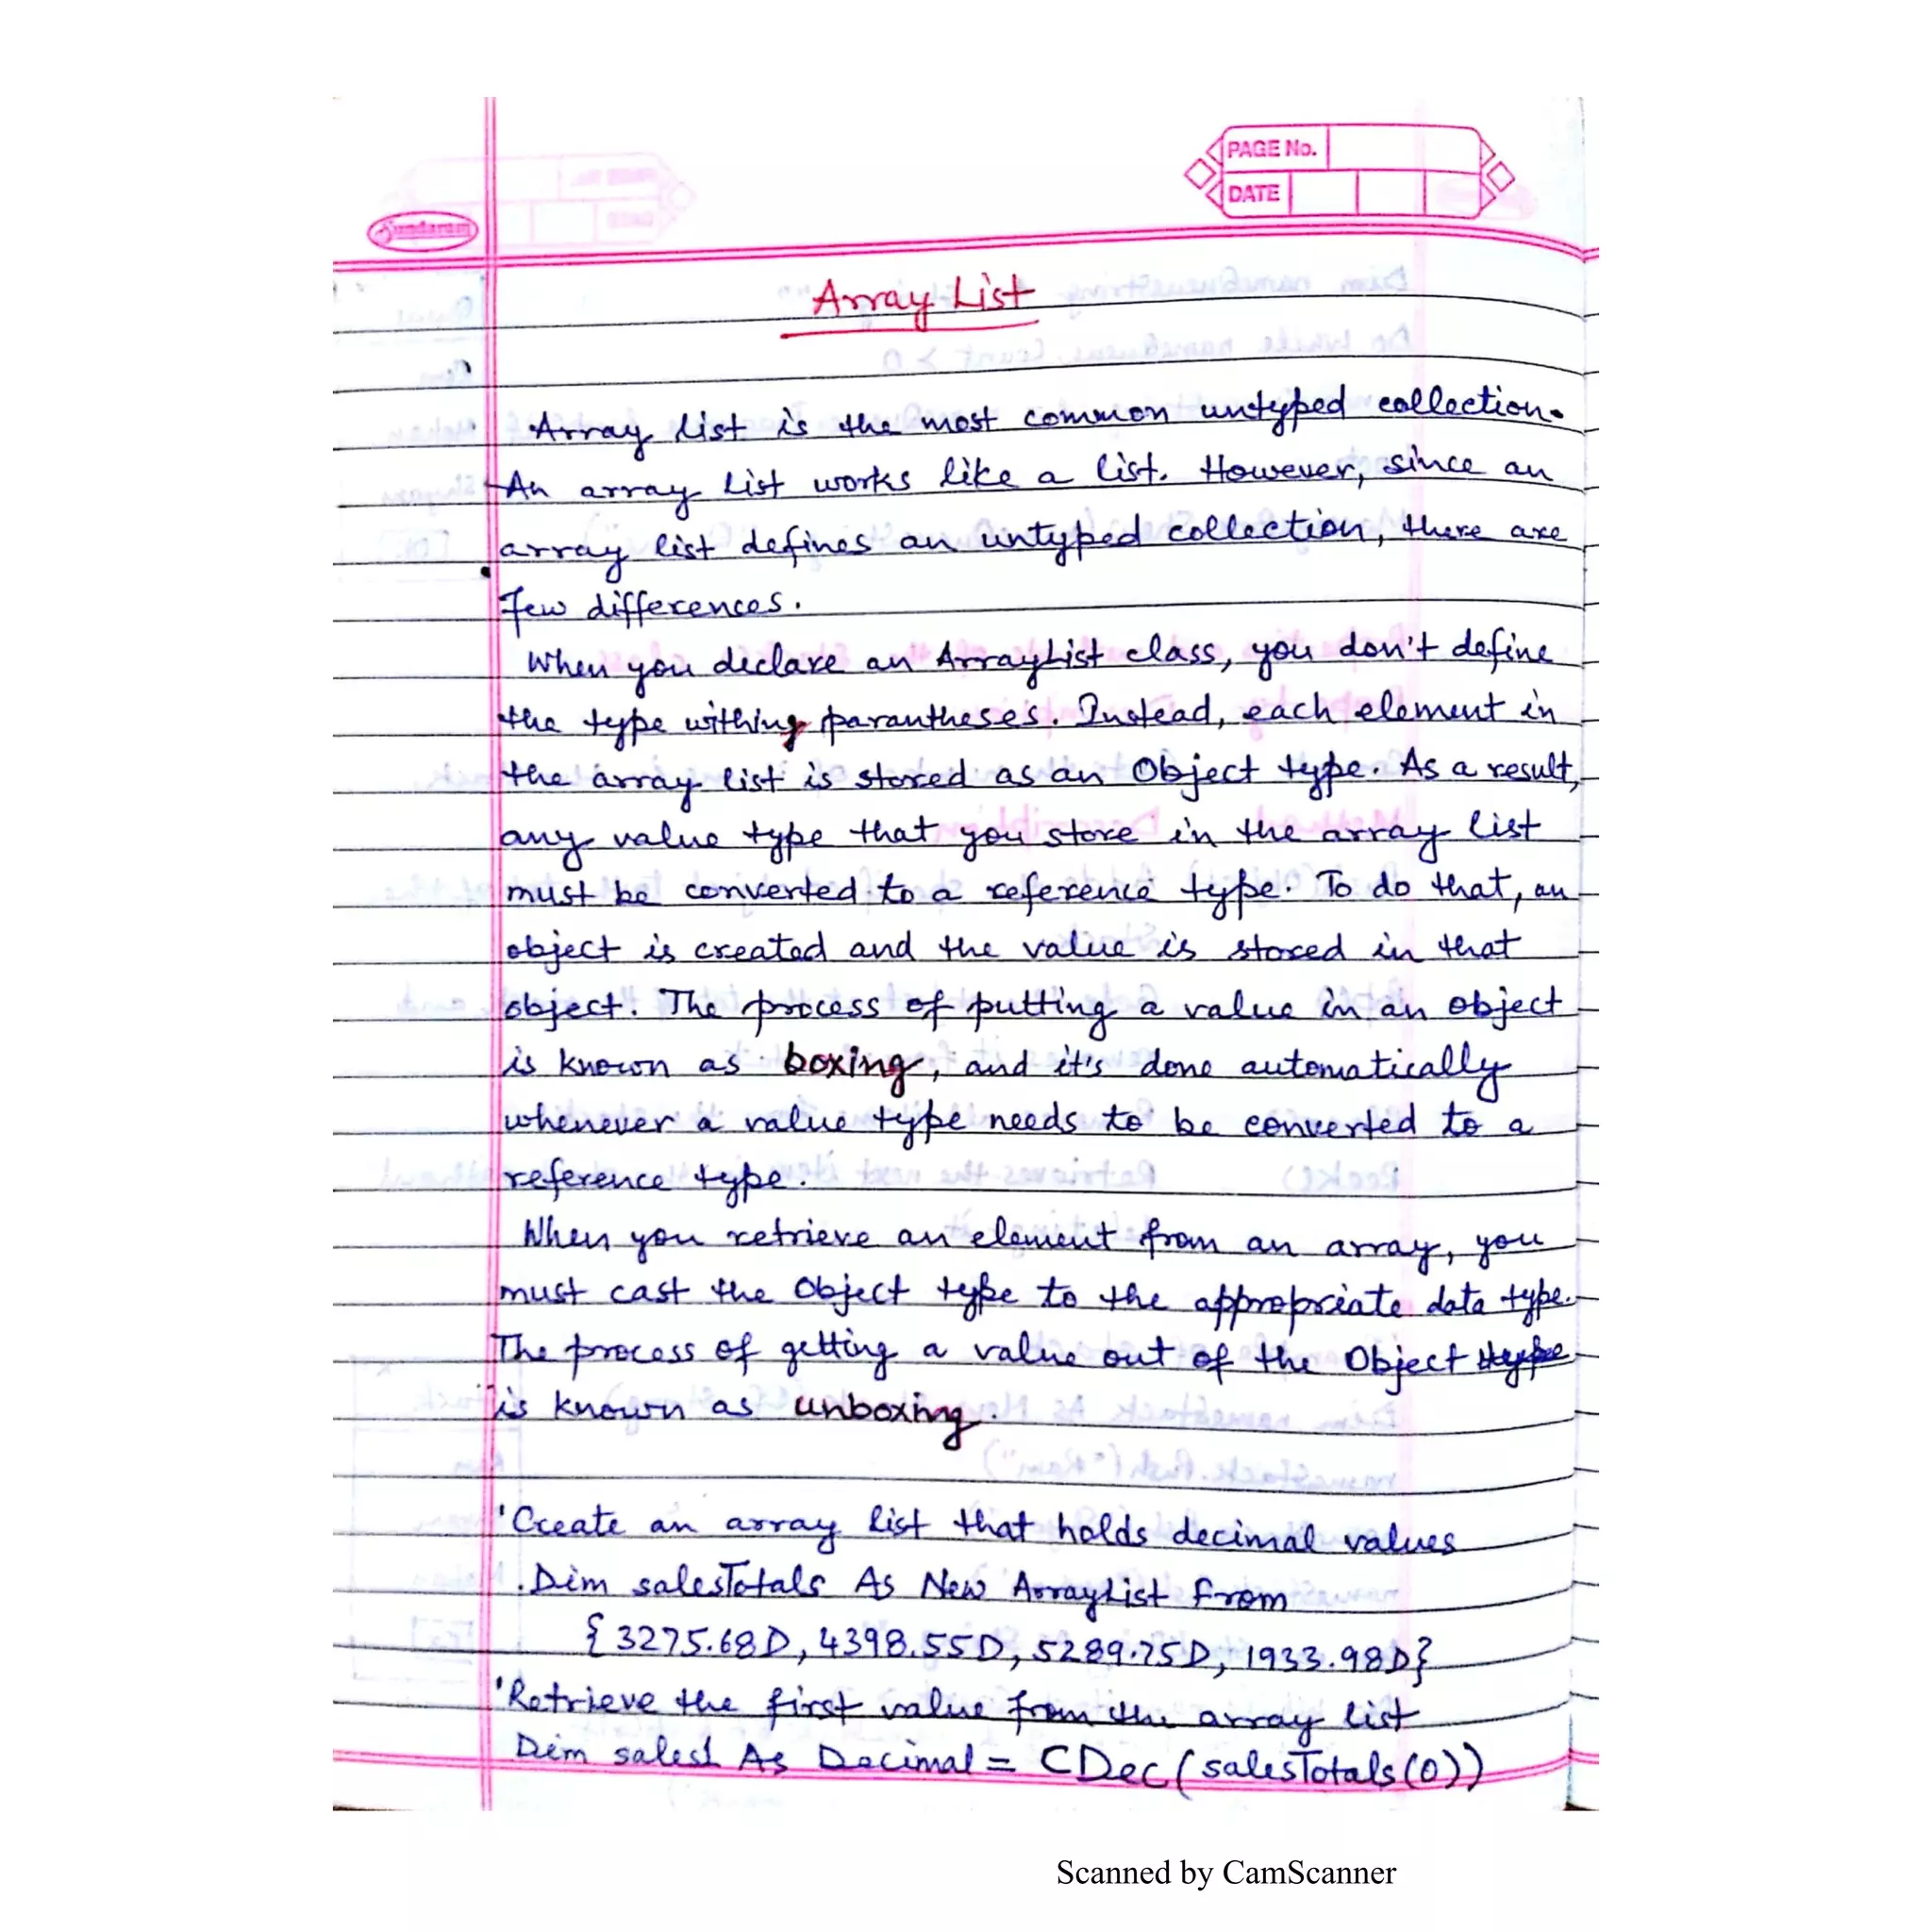 PAGE No.
DATE
Sundaram
Array List
Array list is the most common untyped collection.
An array list works like a list. However, since an
array list defines an untyped collection, there are
few differences.
When you declare an ArrayList class, you don't define
the type withing parantheses. Instead, each element in
the array list is stored as an Object type. As a result,
any value type that you store in the array list
must be converted to a reference type. To do that, an
object is created and the value is stored in that
object. The process of putting a value in an object
is known as boxing, and it's done automatically
whenever a value type needs to be converted to a
reference type.
When you retrieve an element from an array, you
must cast the Object type to the appropriate data type.
The process of getting a value out of the Object type
is known as unboxing.
'Create an array list that holds decimal values
Dim salesTotals As New ArrayList From
{3275.68D, 4398.55D, 5289.75D, 1933.98D}
'Retrieve the first value from the array list
Dim sales1 As Decimal = CDec(salesTotals(0))
Scanned by CamScanner